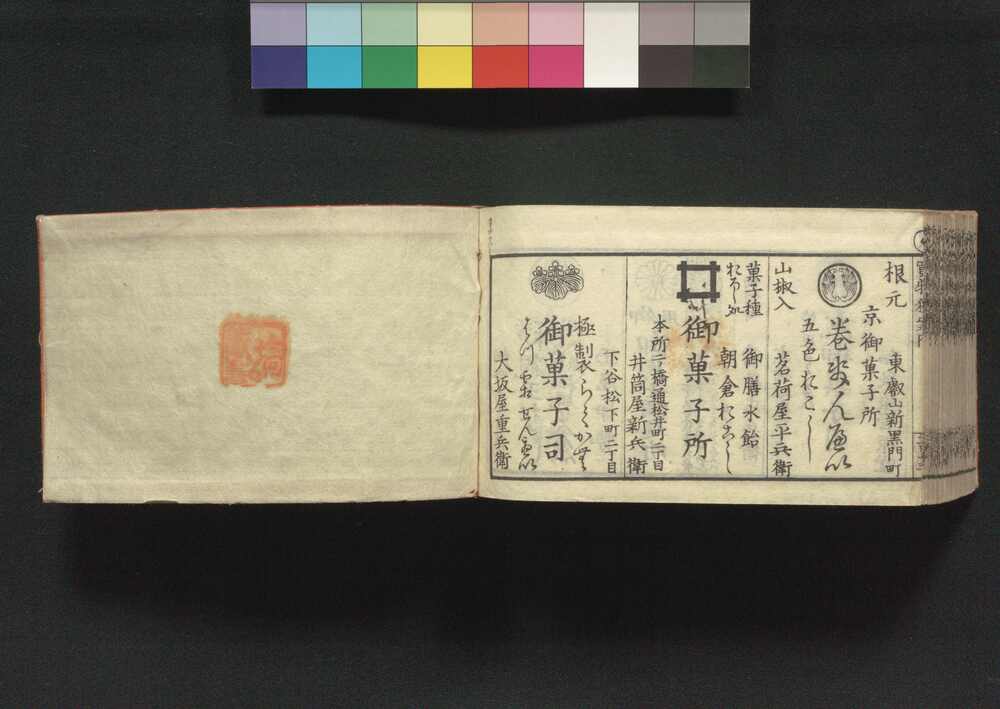 根元
東叡山新黒門町
京御菓子所
巻せんべい
五色おこし
山椒入
茗荷屋平兵衛
菓子種
おろし処
御膳水飴
朝倉おこし
御菓子所
本所二ツ橋通松井町二丁目
井筒屋新兵衛
下谷松下町二丁目
極製らくかん
御菓子司
せんべい
大坂屋重兵衛